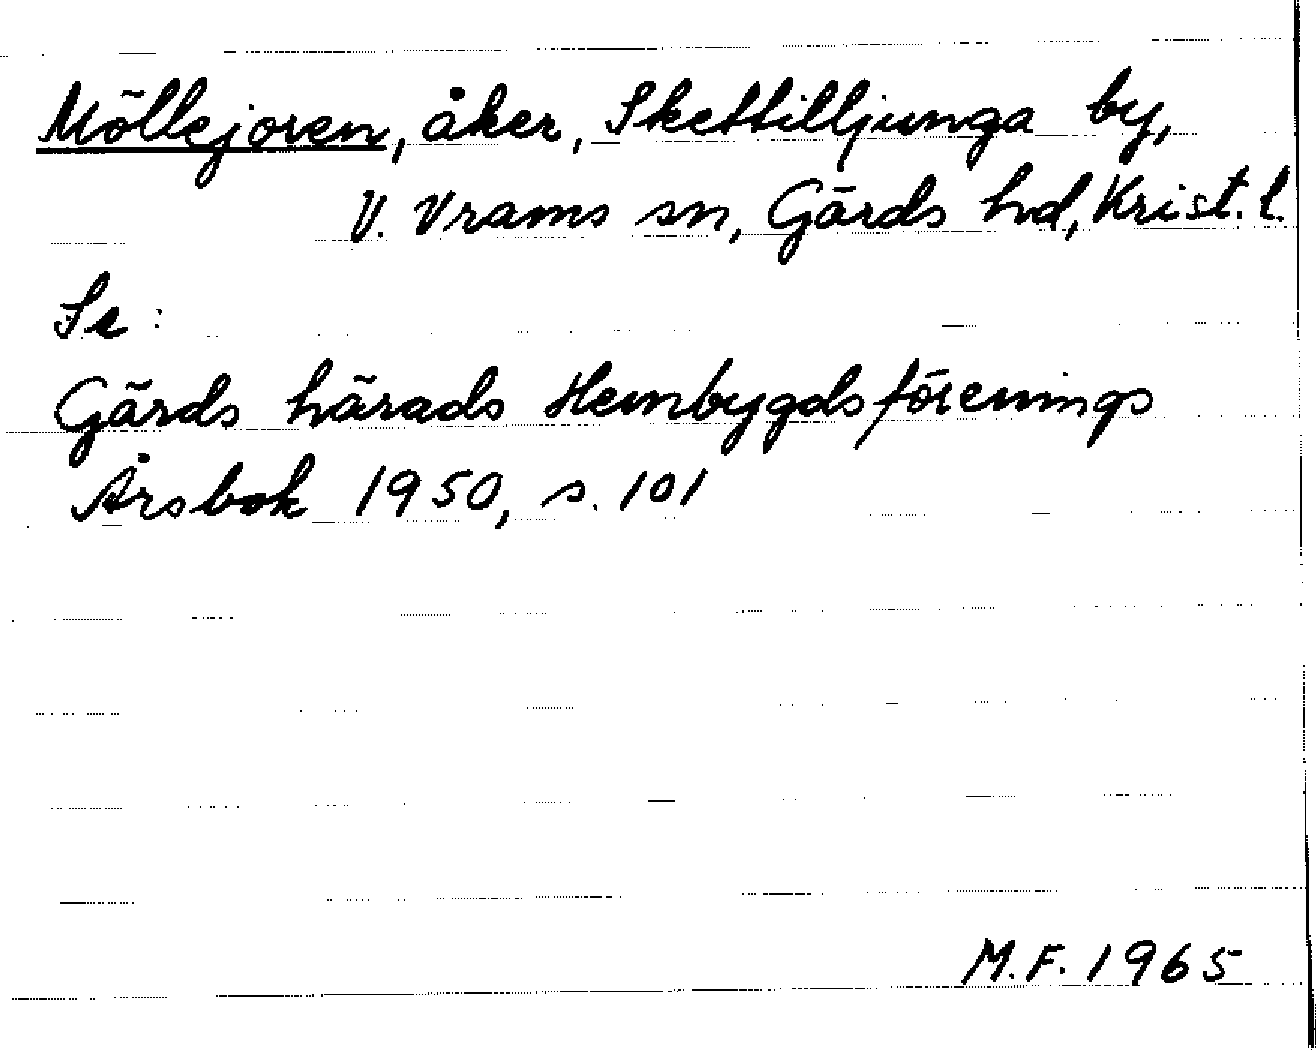 Möllejoren, åker, Skettilljunga by,
V. Vrams sn, Gärds hd, Krist. l.
Se:
Gärds härads Hembygdsförenings
Årsbok 1950, s. 101
M.F. 1965